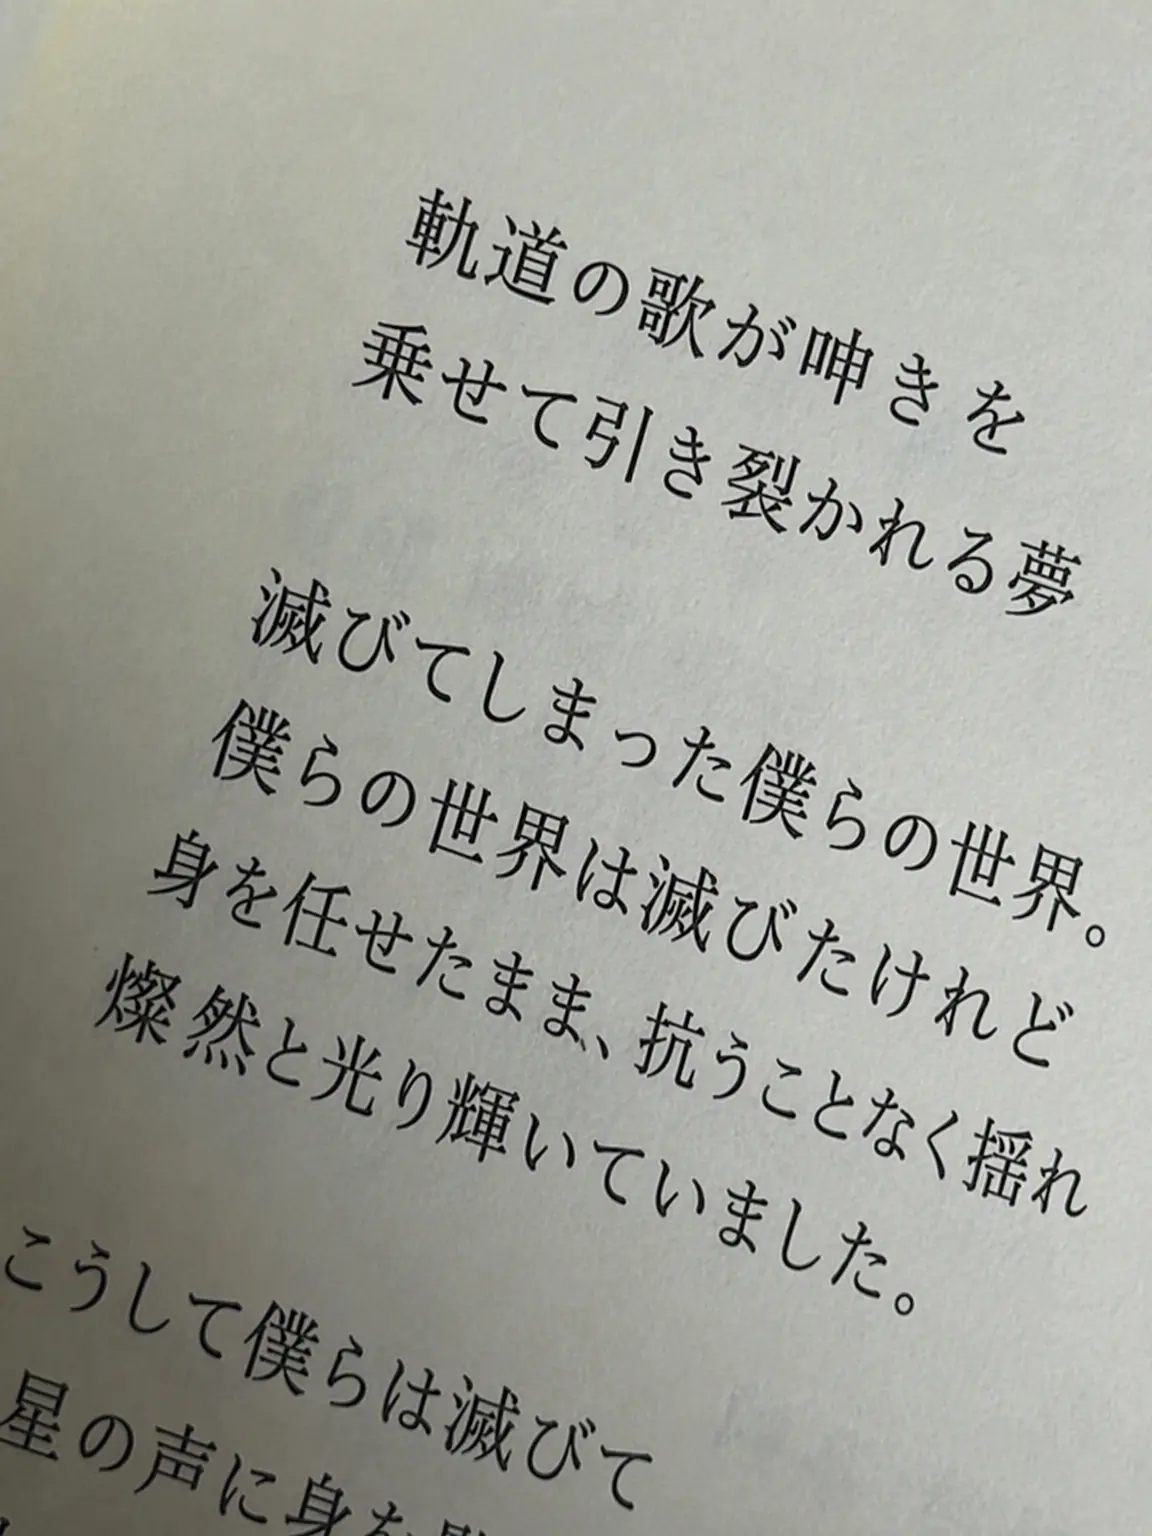 軌道の歌が呻きを
乗せて引き裂かれる夢
滅びてしまった僕らの世界。
僕らの世界は滅びたけれど
身を任せたまま、抗うことなく揺れ
燦然と光り輝いていました。
こうして僕らは滅びて
星の声に身を